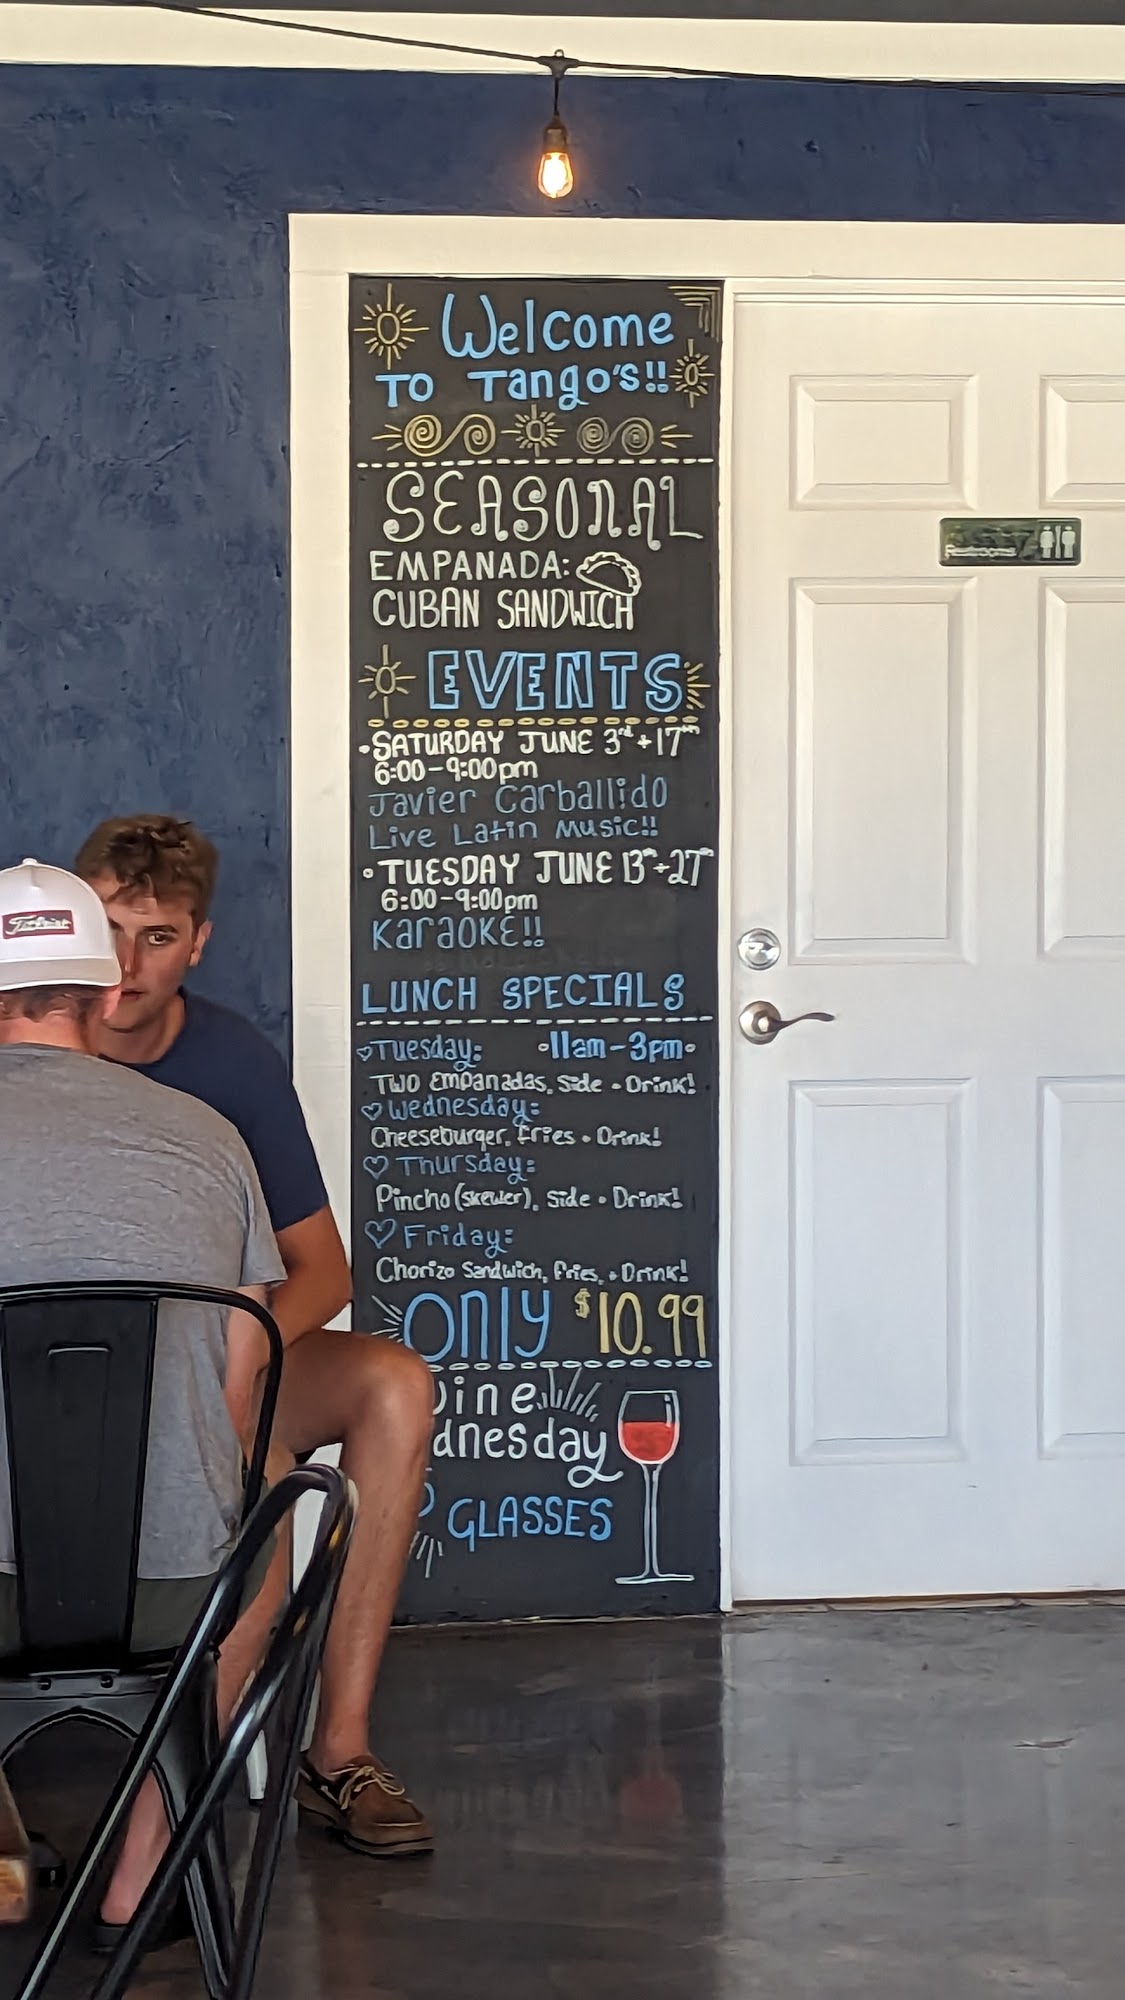 Welcome
TO Tango's!!
SEASONAL
EMPANADA:
CUBAN SANDWICH
EVENTS
•SATURDAY JUNE 3rd+17th
6:00-9:00pm
Javier Carballido
Live Latin Music!!
•TUESDAY JUNE 13th+27th
6:00-9:00pm
KaraoKE!!
LUNCH SPECIALS
Tuesday: •11am-3pm•
TWO Empanadas, Side + Drink!
Wednesday:
Cheeseburger, Fries + Drink!
Thursday:
Pincho (skewer), Side + Drink!
Friday:
Chorizo Sandwich, Fries, + Drink!
ONLY $10.99
ine
dnesday
GLASSES
Restrooms
Titleist